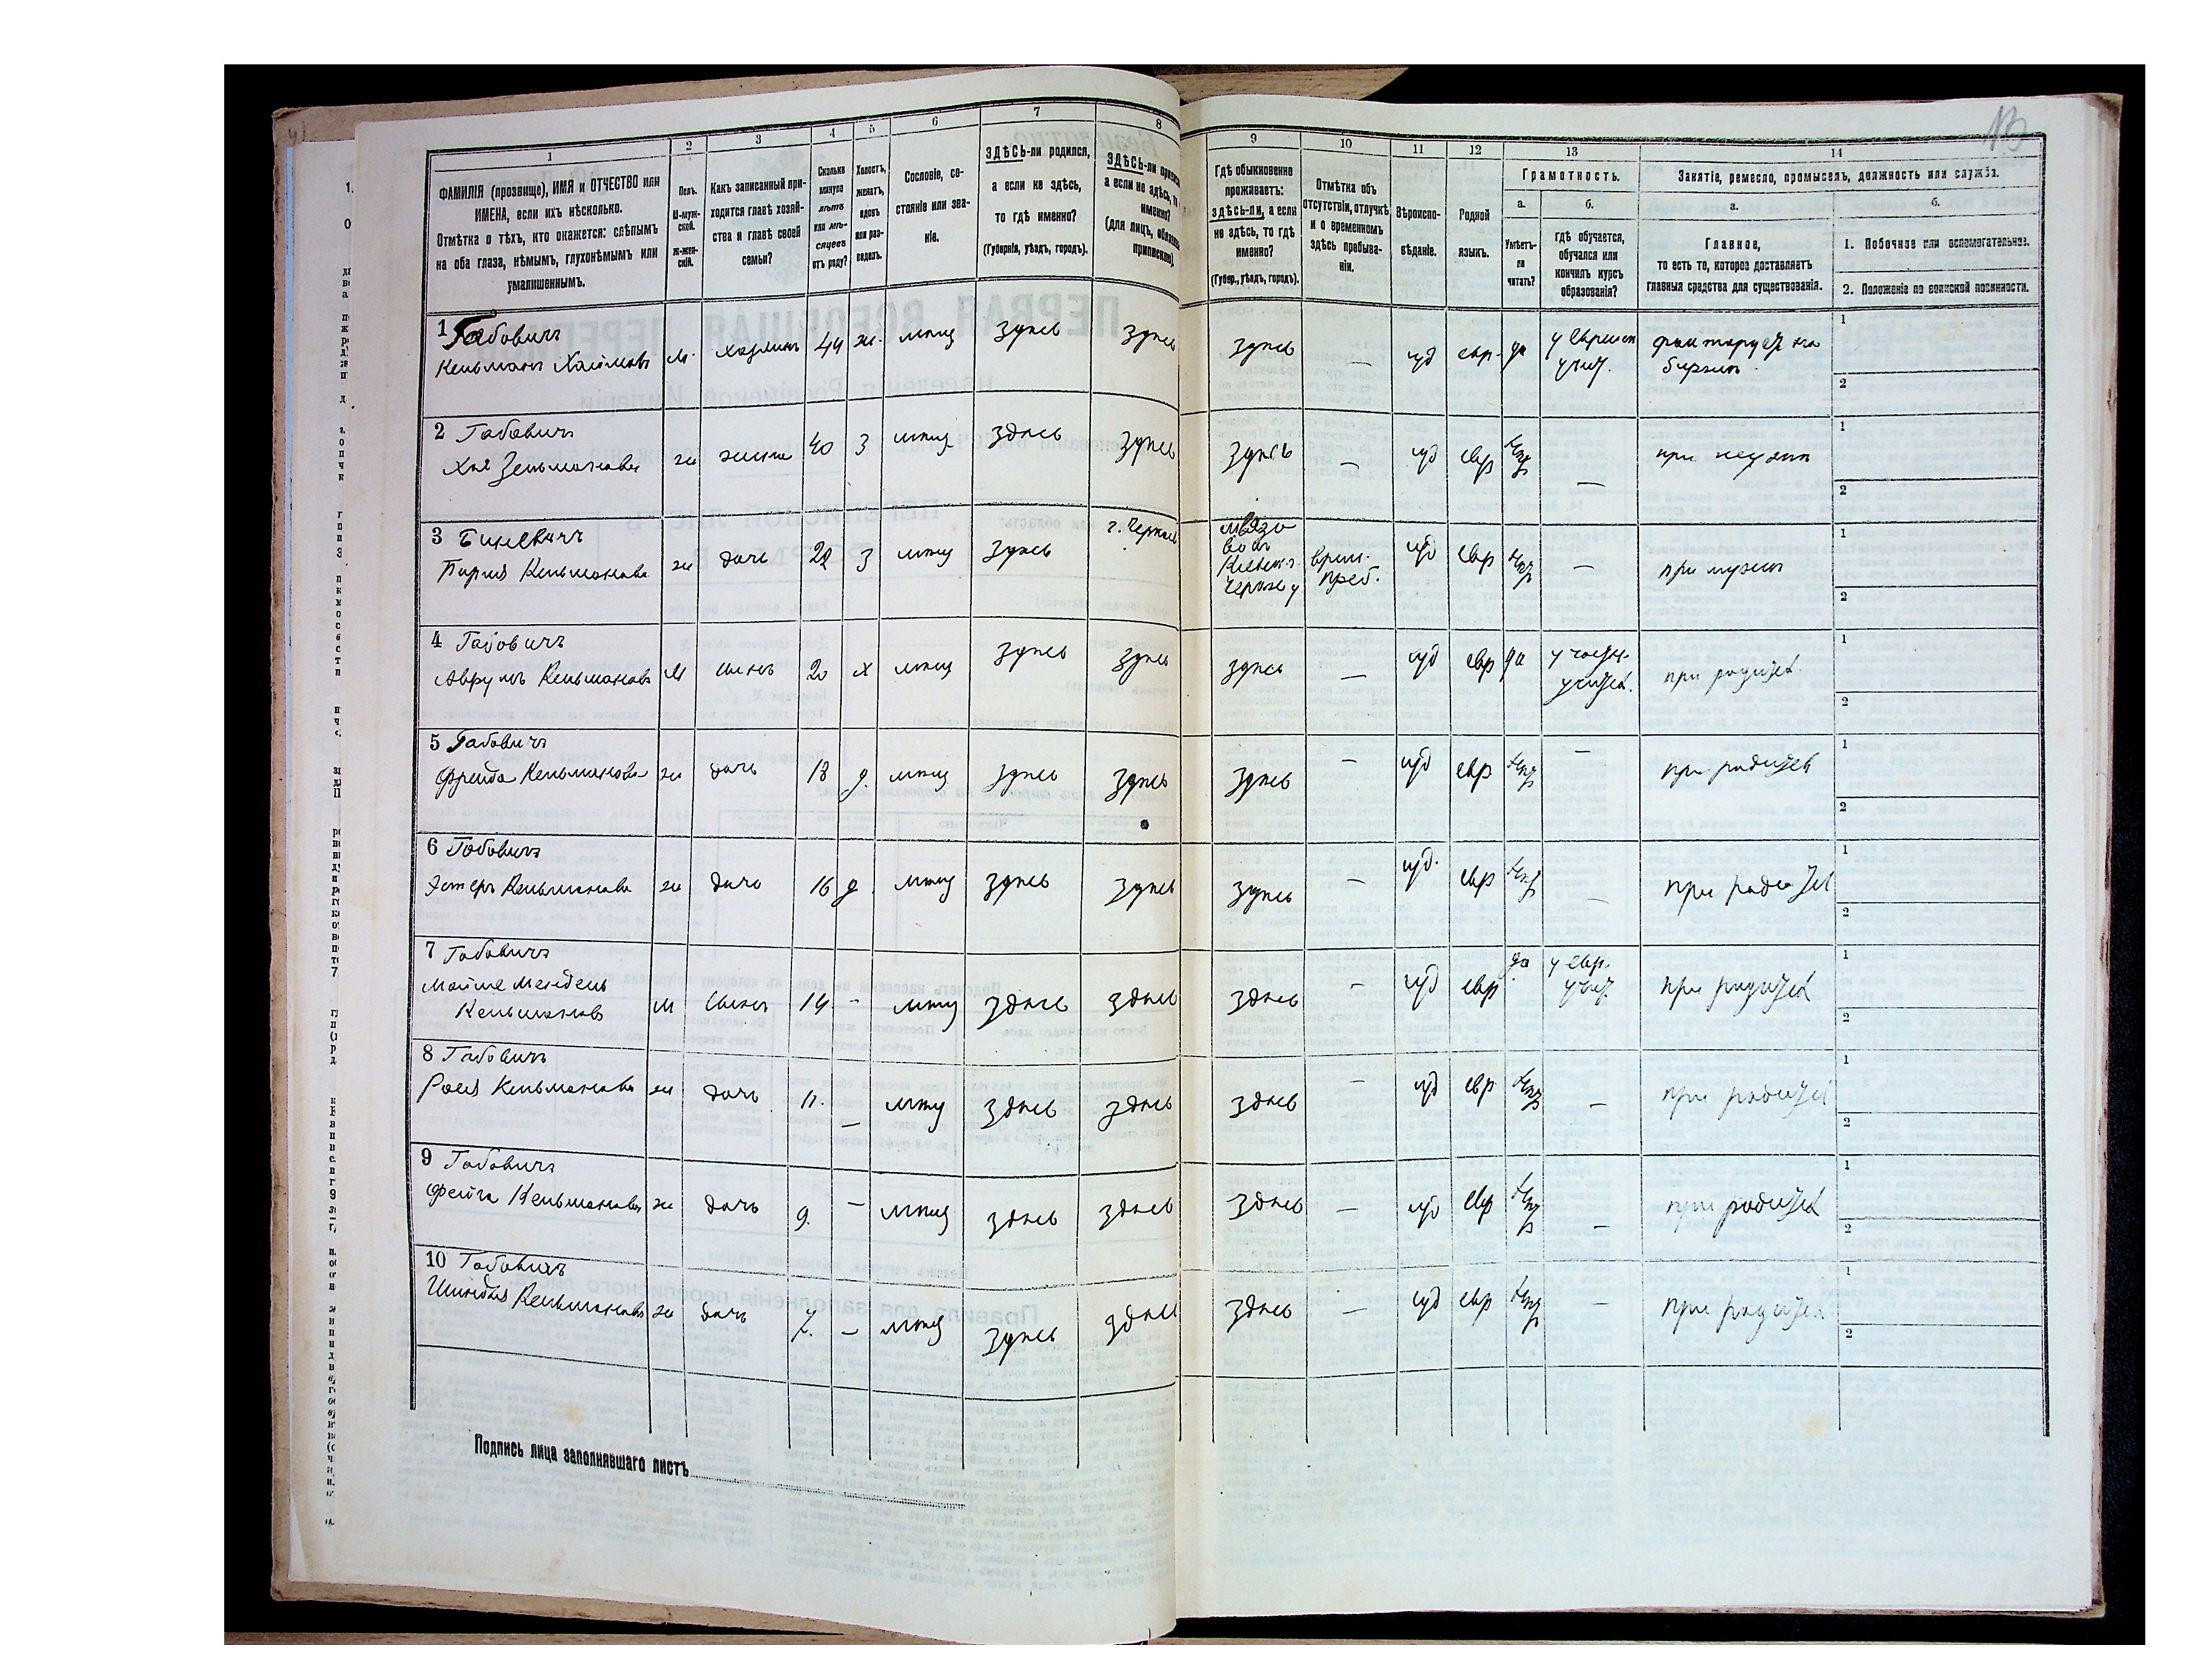 1
2
3
4
5
6
7
8
9
10
11
12
13
14
ФАМИЛІЯ (прозвище), ИМЯ и ОТЧЕСТВО или
ИМЕНА, если ихъ нѣсколько.
Отмѣтка о тѣхъ, кто окажется: слѣпымъ
на оба глаза, нѣмымъ, глухонѣмымъ или
умалишеннымъ.
Полъ.
М-муж-
ской.
Ж-жен-
скій.
Какъ записанный при-
ходится главѣ хозяй-
ства и главѣ своей
семьи?
Сколько
минуло
лѣтъ
или мѣ-
сяцевъ
отъ роду?
Холостъ,
женатъ,
вдовъ
или раз-
веденъ.
Сословіе, со-
стояніе или зва-
ніе.
ЗДѢСЬ-ли родился,
а если не здѣсь,
то гдѣ именно?
(Губернія, уѣздъ, городъ).
ЗДѢСЬ-ли
а если не здѣсь,
именно?
(для лицъ,
Гдѣ обыкновенно
проживаетъ:
здѣсь-ли, а если
не здѣсь, то гдѣ
именно?
(Губер., уѣздъ, городъ).
Отмѣтка объ
отсутствіи, отлучкѣ
и о временномъ
здѣсь пребыва-
ніи.
Вѣроиспо-
вѣданіе.
Родной
языкъ.
Грамотность.
а.
б.
Умѣетъ-
ли
читать?
гдѣ обучается,
обучался или
кончилъ курсъ
образованія?
Занятіе, ремесло, промыселъ, должность или служба.
а.
б.
Главное,
то есть то, которое доставляетъ
главныя средства для существованія.
1. Побочное или вспомогательное.
2. Положеніе по воинской повинности.
1 Габовичъ
Кельманъ Хаимовъ м. хозяинъ 44 ж. мѣщ здѣсь здѣсь здѣсь — іуд евр. да у еврейск учит. факторуетъ на биржѣ 1 2
2 Габовичъ
Хая Зельманова ж жена 40 З мѣщ здѣсь здѣсь здѣсь — іуд евр нѣтъ — при мужѣ 1 2
3 Биневичъ
Пирля Кельманова ж дочь 22 З мѣщ здѣсь г. Черкасы
Кіевск. г.
врем.
преб.
іуд евр нѣтъ — при мужѣ 1 2
4 Габовичъ
Аврумъ Кельмановъ М сынъ 20 х мѣщ здѣсь здѣсь здѣсь — іуд евр да у частн. учител. при родител. 1 2
5 Габовичъ
Фрейда Кельманова ж дочь 18 д. мѣщ здѣсь здѣсь здѣсь — іуд евр нѣтъ — при родител 1 2
6 Габовичъ
Эстеръ Кельманова ж дочь 16 д мѣщ здѣсь здѣсь здѣсь — іуд. евр нѣтъ — при родител 1 2
7 Габовичъ
Мойше Мендель
Кельмановъ м сынъ 14. — мѣщ здѣсь здѣсь здѣсь — іуд евр да у евр. учит. при родител 1 2
8 Габовичъ
Рося Кельманова ж дочь 11. — мѣщ здѣсь здѣсь здѣсь — іуд евр нѣтъ — при родител 1 2
9 Габовичъ
Фейга Кельманова ж дочь 9. — мѣщ здѣсь здѣсь здѣсь — іуд евр нѣтъ — при родител 1 2
10 Габовичъ
Шиндля Кельманова ж дочь 7. — мѣщ здѣсь здѣсь здѣсь — іуд евр нѣтъ — при родител 1 2
Подпись лица заполнявшаго листъ